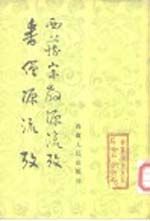 西藏宗教源流考
番僧源流考
西藏人民出版社